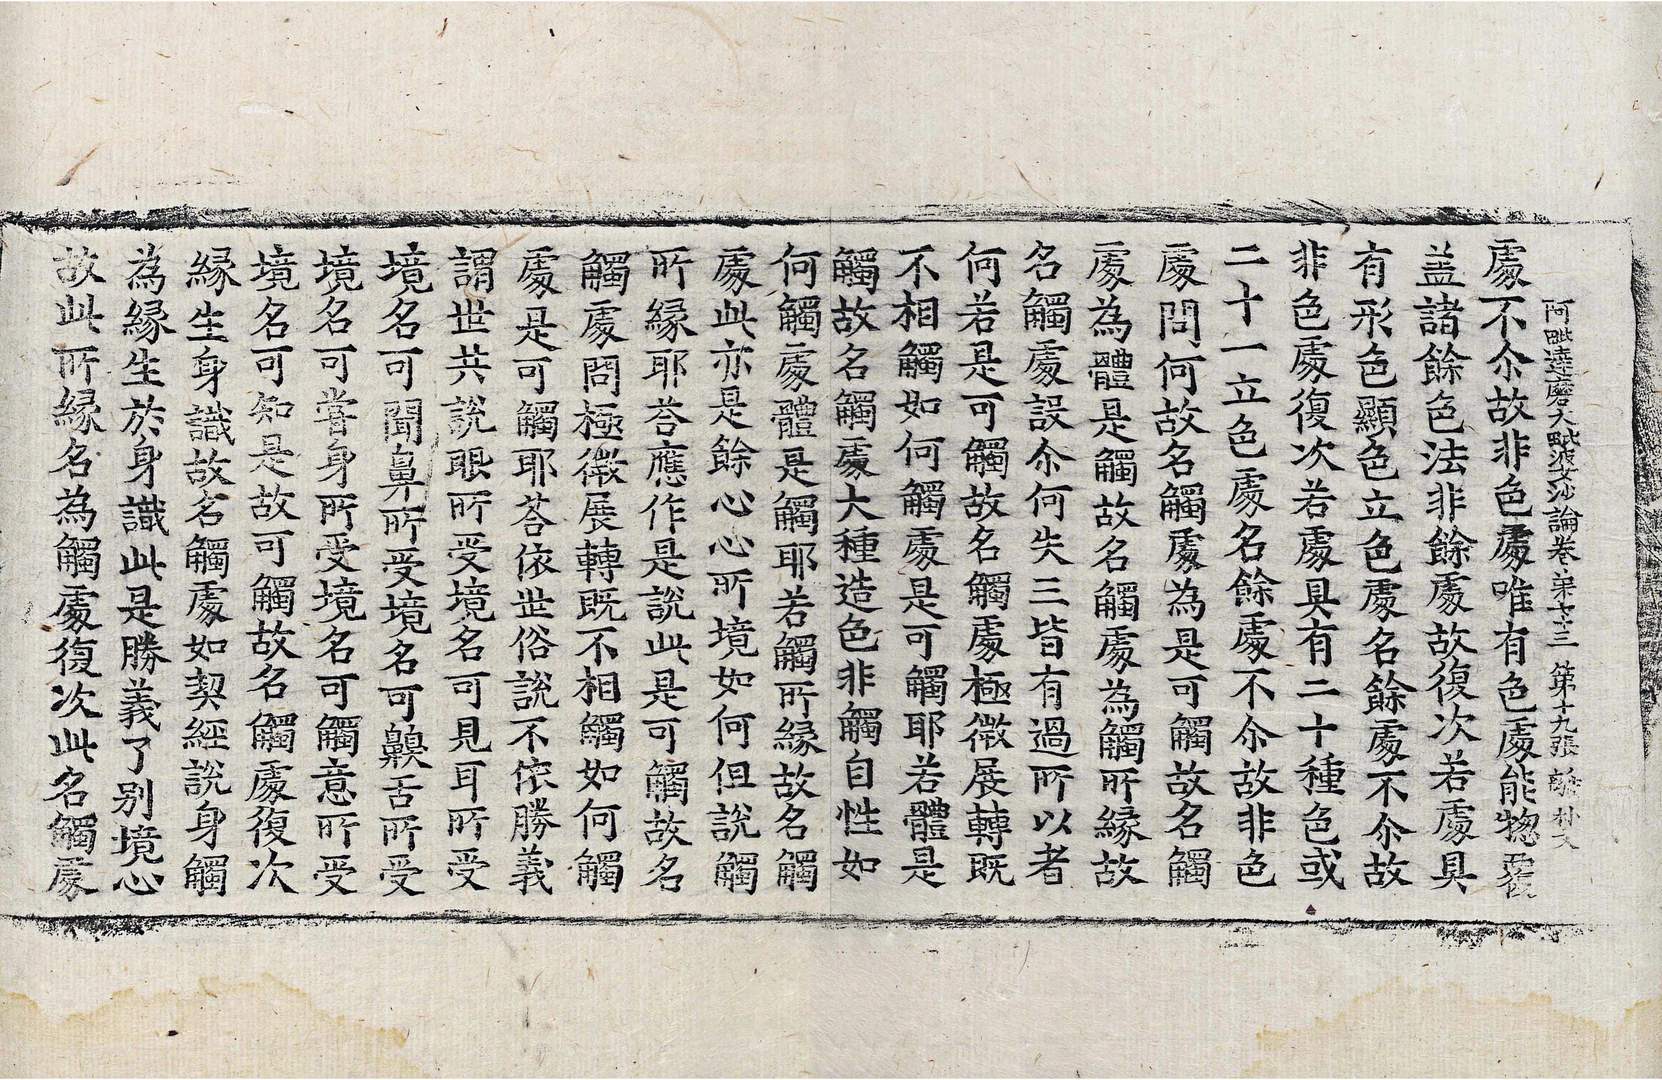 阿毗達磨大毗婆沙論卷第七十三 第十九張
處不尒故非色處唯有色處能惣覆
盖諸餘色法非餘處故復次若處具
有形色顯色立色處名餘處不尒故
非色處復次若處具有二十種色或
二十一立色處名餘處不尒故非色
處問何故名觸處為是可觸故名觸
處為體是觸故名觸處為觸所緣故
名觸處設尒何失三皆有過所以者
何若是可觸故名觸處極微展轉既
不相觸如何觸處是可觸耶若體是
觸故名觸處大種造色非觸自性如
何觸處體是觸耶若觸所緣故名觸
處此亦是餘心心所境如何但說觸
所緣耶荅應作是說此是可觸故名
觸處問極微展轉既不相觸如何觸
處是可觸耶荅依世俗說不依勝義
謂世共說眼所受境名可見耳所受
境名可聞鼻所受境名可齅舌所受
境名可甞身所受境名可觸意所受
境名可知是故可觸故名觸處復次
緣生身識故名觸處如契經說身觸
為緣生於身識此是勝義了別境心
故此所緣名為觸處復次此名觸處